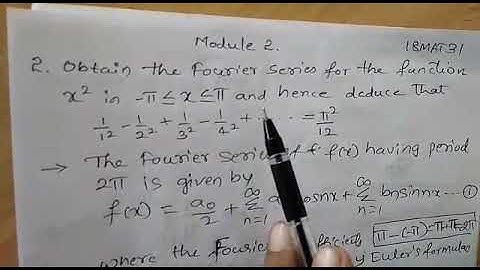 Module 2. 18MAT31
2. Obtain the Fourier Series for the function
x² in -π ≤ x ≤ π and hence deduce that
1/1² - 1/2² + 1/3² - 1/4² + ... = π²/12
→ The Fourier Series of f(x) having period
2π is given by
f(x) = a₀/2 + ∞Σn=1 cosnx + ∞Σn=1 bnsinnx --- ①
where the π-(-π)=π+π=2π
by Euler's formulae